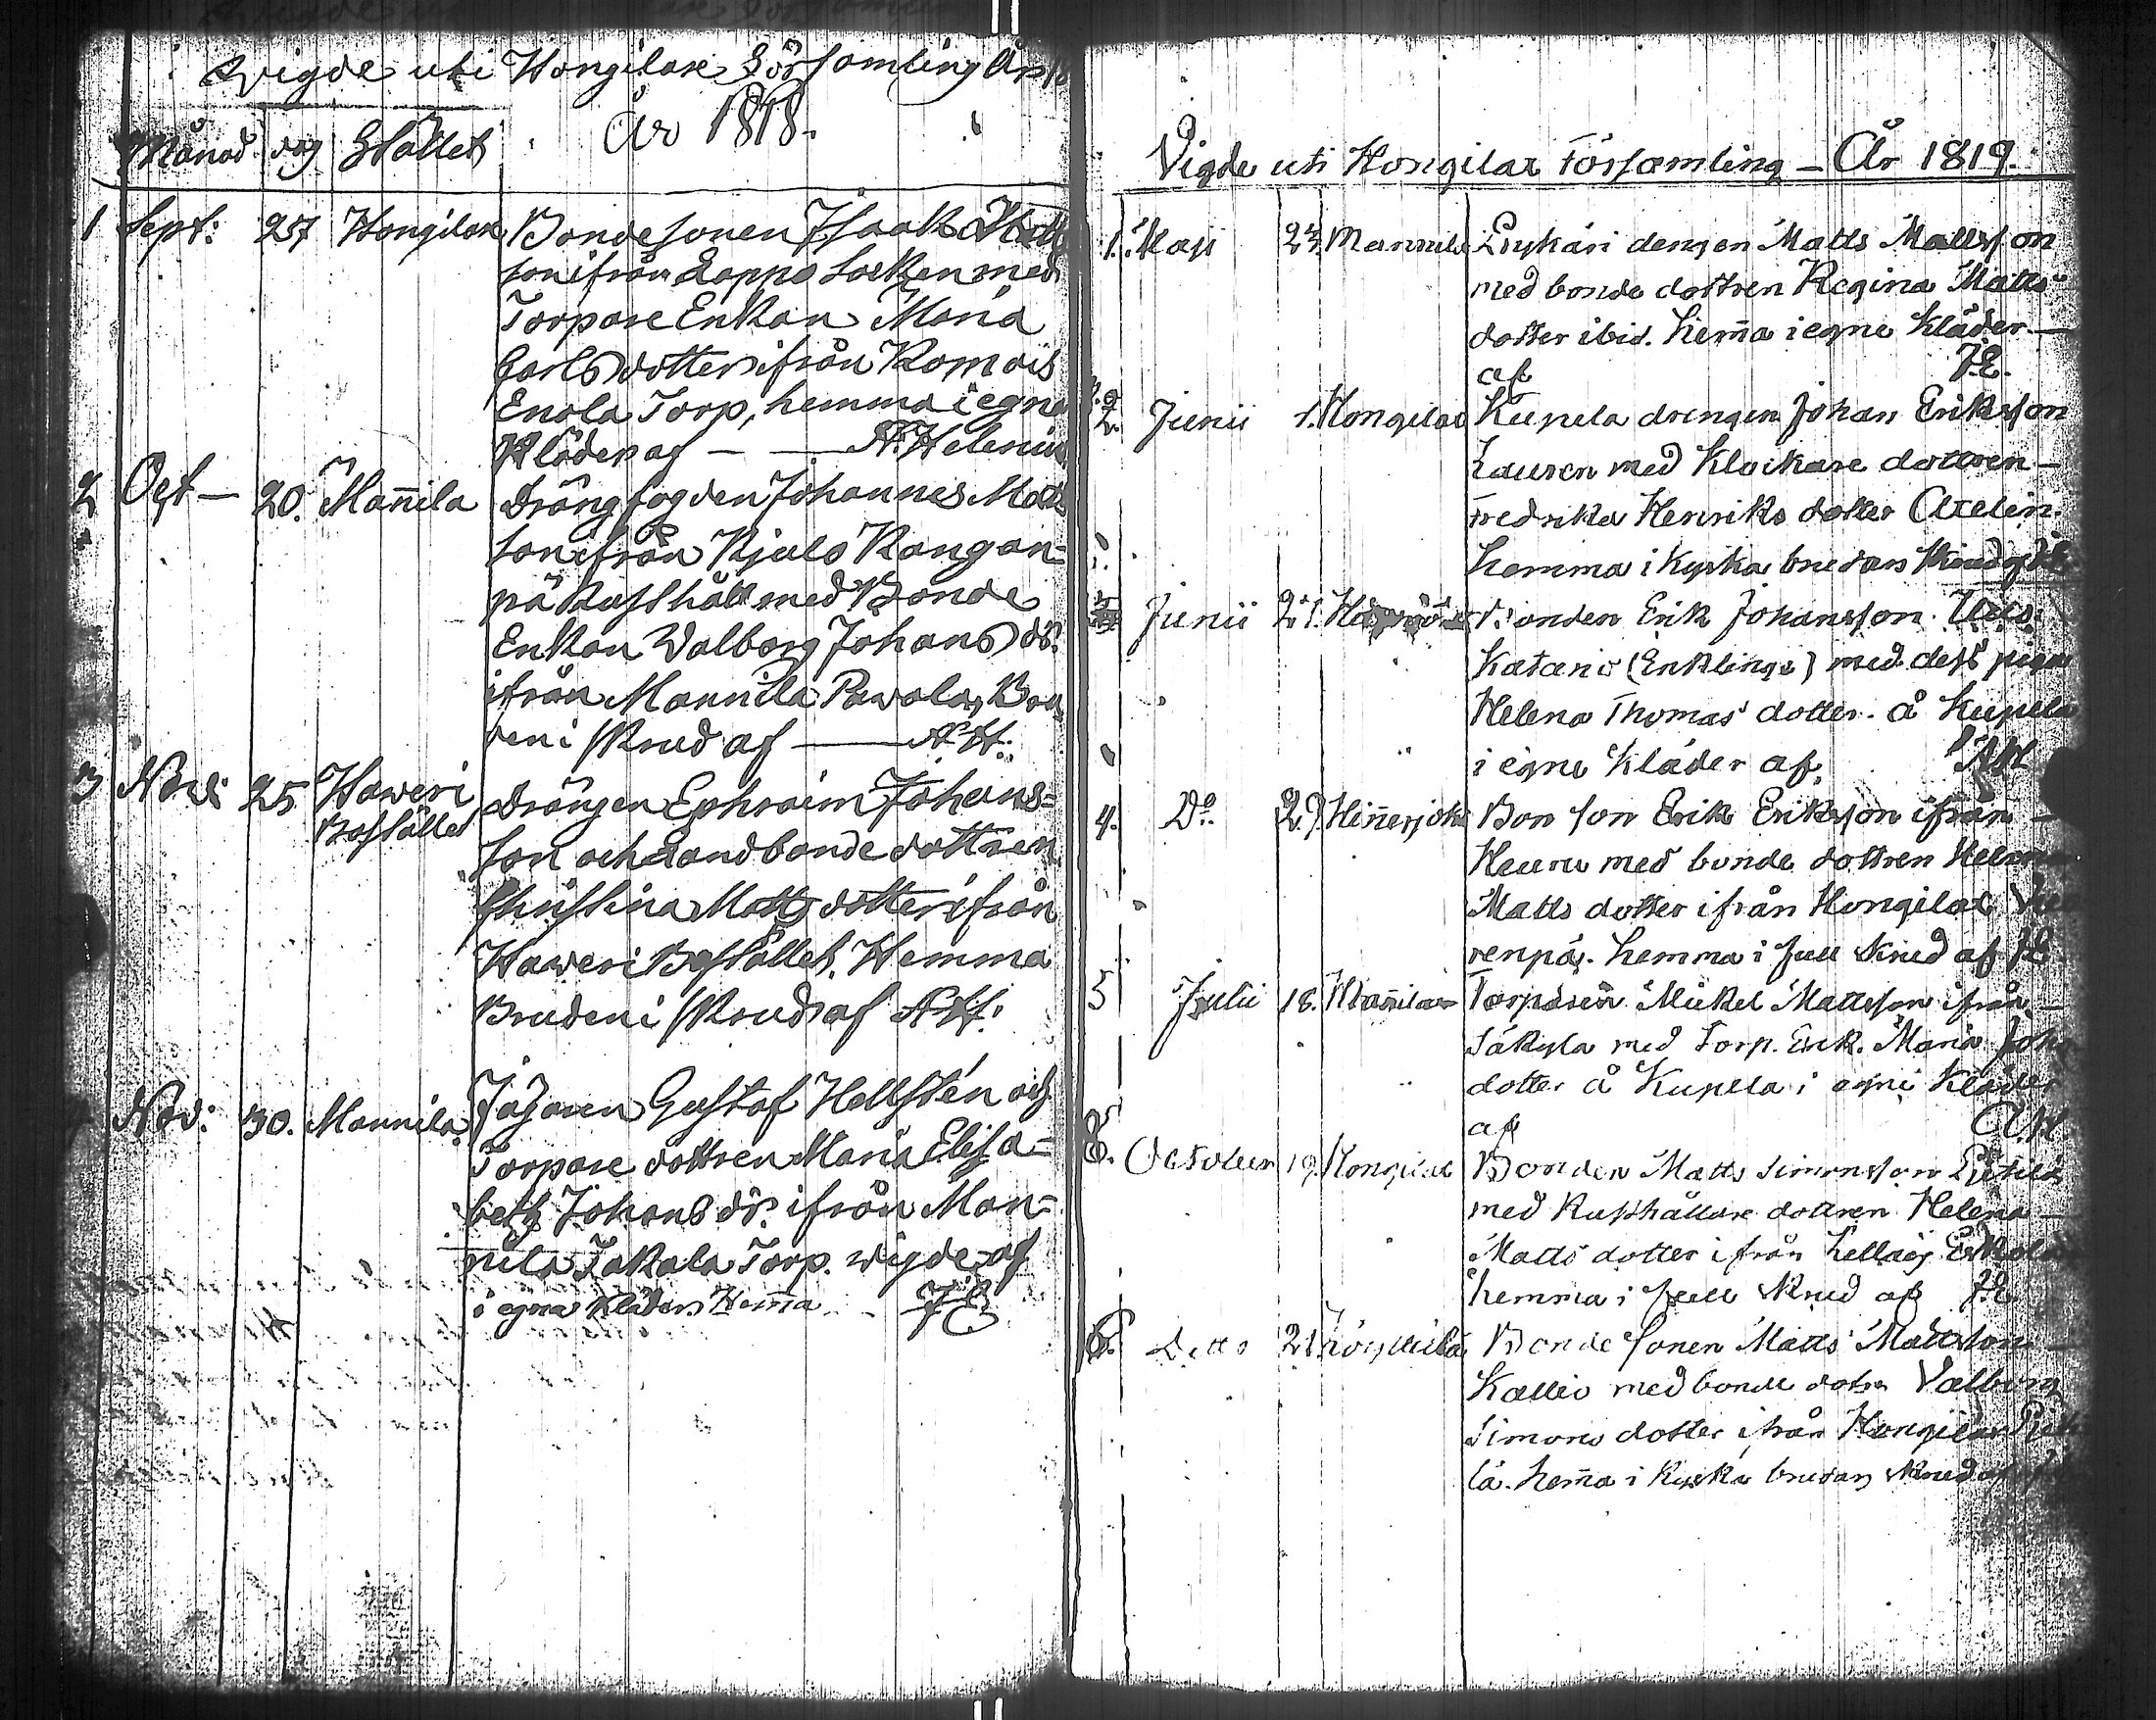 Wigde uti Hongilax Församling
År 1818.
Månad dag Stället
1 Sept: 27 Hongilax Bondesonen Isaak
son ifrån Lappo Socken med
Torpare Enkan Maria
Carls dotter ifrån
Torp, hemma i egna
Kläder af — — A. Helenius
2 Oct — 20. Mañila Drängfogden Johannes Matts
son ifrån Kjulo Kangan-
pä Rusthåll med Bonde
Enkan Walborg Johans dr.
ifrån Mannila Pavola, Bru
den i skrud af — A. H.
3 Nov: 25 Haweri Bostället Drängen Ephraim Johans-
son och Landbonde dottren
Christina Matts dotter ifrån
Haweri Bostället. Hemma
Bruden i skrud af A. H.
Nov: 30. Mannila Jägaren Gustaf Hellstén och
Torpare dottren Maria Elisa-
beth Johans dr. ifrån Man-
nila Jakala Torp. wigde af
i egna kläder Hem̄a J. E.
Vigde uti Hongilax Församling — År 1819.
1. Maji 23. Mannila drengen Matts Mattsson
med bonde dottren Regina Matts-
dotter ibid. hem̄a i egne Kläder —
af J. E.
2. Junii 1. Hongilax Kupela drengen Johan Eriksson
Lauren med Klockare dottren —
Fredrika Henriks dotter Axelin.
hemma i Kyrko brudars skrud af J. E.
3 Junii 21. Bonden Erik Johansson
(Enkling) med dess piga
Helena Thomas dotter å Kupela
i egne Kläder af. A. H
4. Do. 29. Hiñerjoki Bon son Erik Eriksson ifrån —
med bonde dottren
Matts dotter ifrån Hongilax
renpää. hemma i full skrud af J. E.
5 Julii 18. Mañila Torparen Mickel Mattsson ifrån —
Säkyla med Torp. Enk. Maria Joh
dotter å Kupela i egne Kläder
af A. H
October 19. Hongilax Bonden Matts Simonsson
med Rusthållare dottren Helena —
Matts dotter ifrån Eskola
hemma i full skrud af J. E.
6. Ditto 21. Bonde sonen Matts Mattsson —
Kallio med bonde dotn Valborg
Simons dotter ifrån Hongilax
lä. hem̄a i Kyrko brudars skrud af